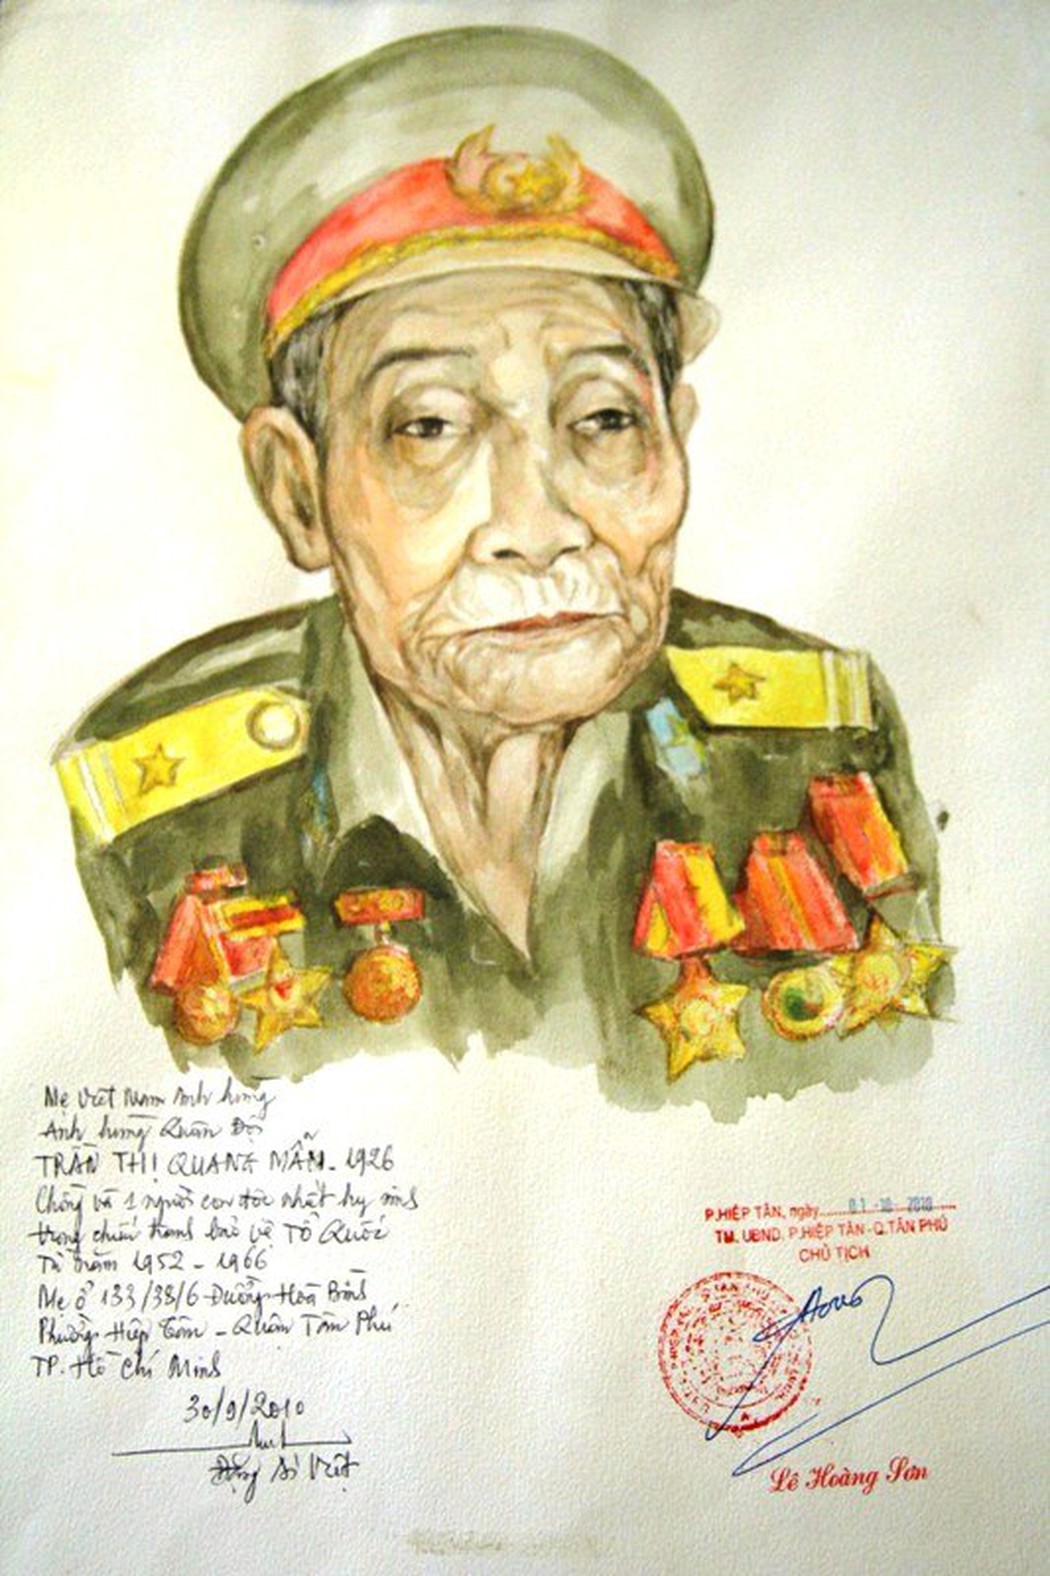 Mẹ Việt Nam Anh hùng
Anh hùng Quân Đội
TRẦN THỊ QUANG MẪN - 1926
Chồng và 1 người con độc nhất hy sinh
trong chiến tranh bảo vệ TỔ Quốc
Từ năm 1952 - 1966
Mẹ ở 133/38/6 Đường Hòa Bình
Phường Hiệp Tân - Quận Tân Phú
TP. Hồ Chí Minh
30/9/2010
Đặng Ái Việt
P.HIỆP TÂN, ngày 01 -10- 2010
TM. UBND. P.HIỆP TÂN - Q.TÂN PHÚ
CHỦ TỊCH
Lê Hoàng Sơn